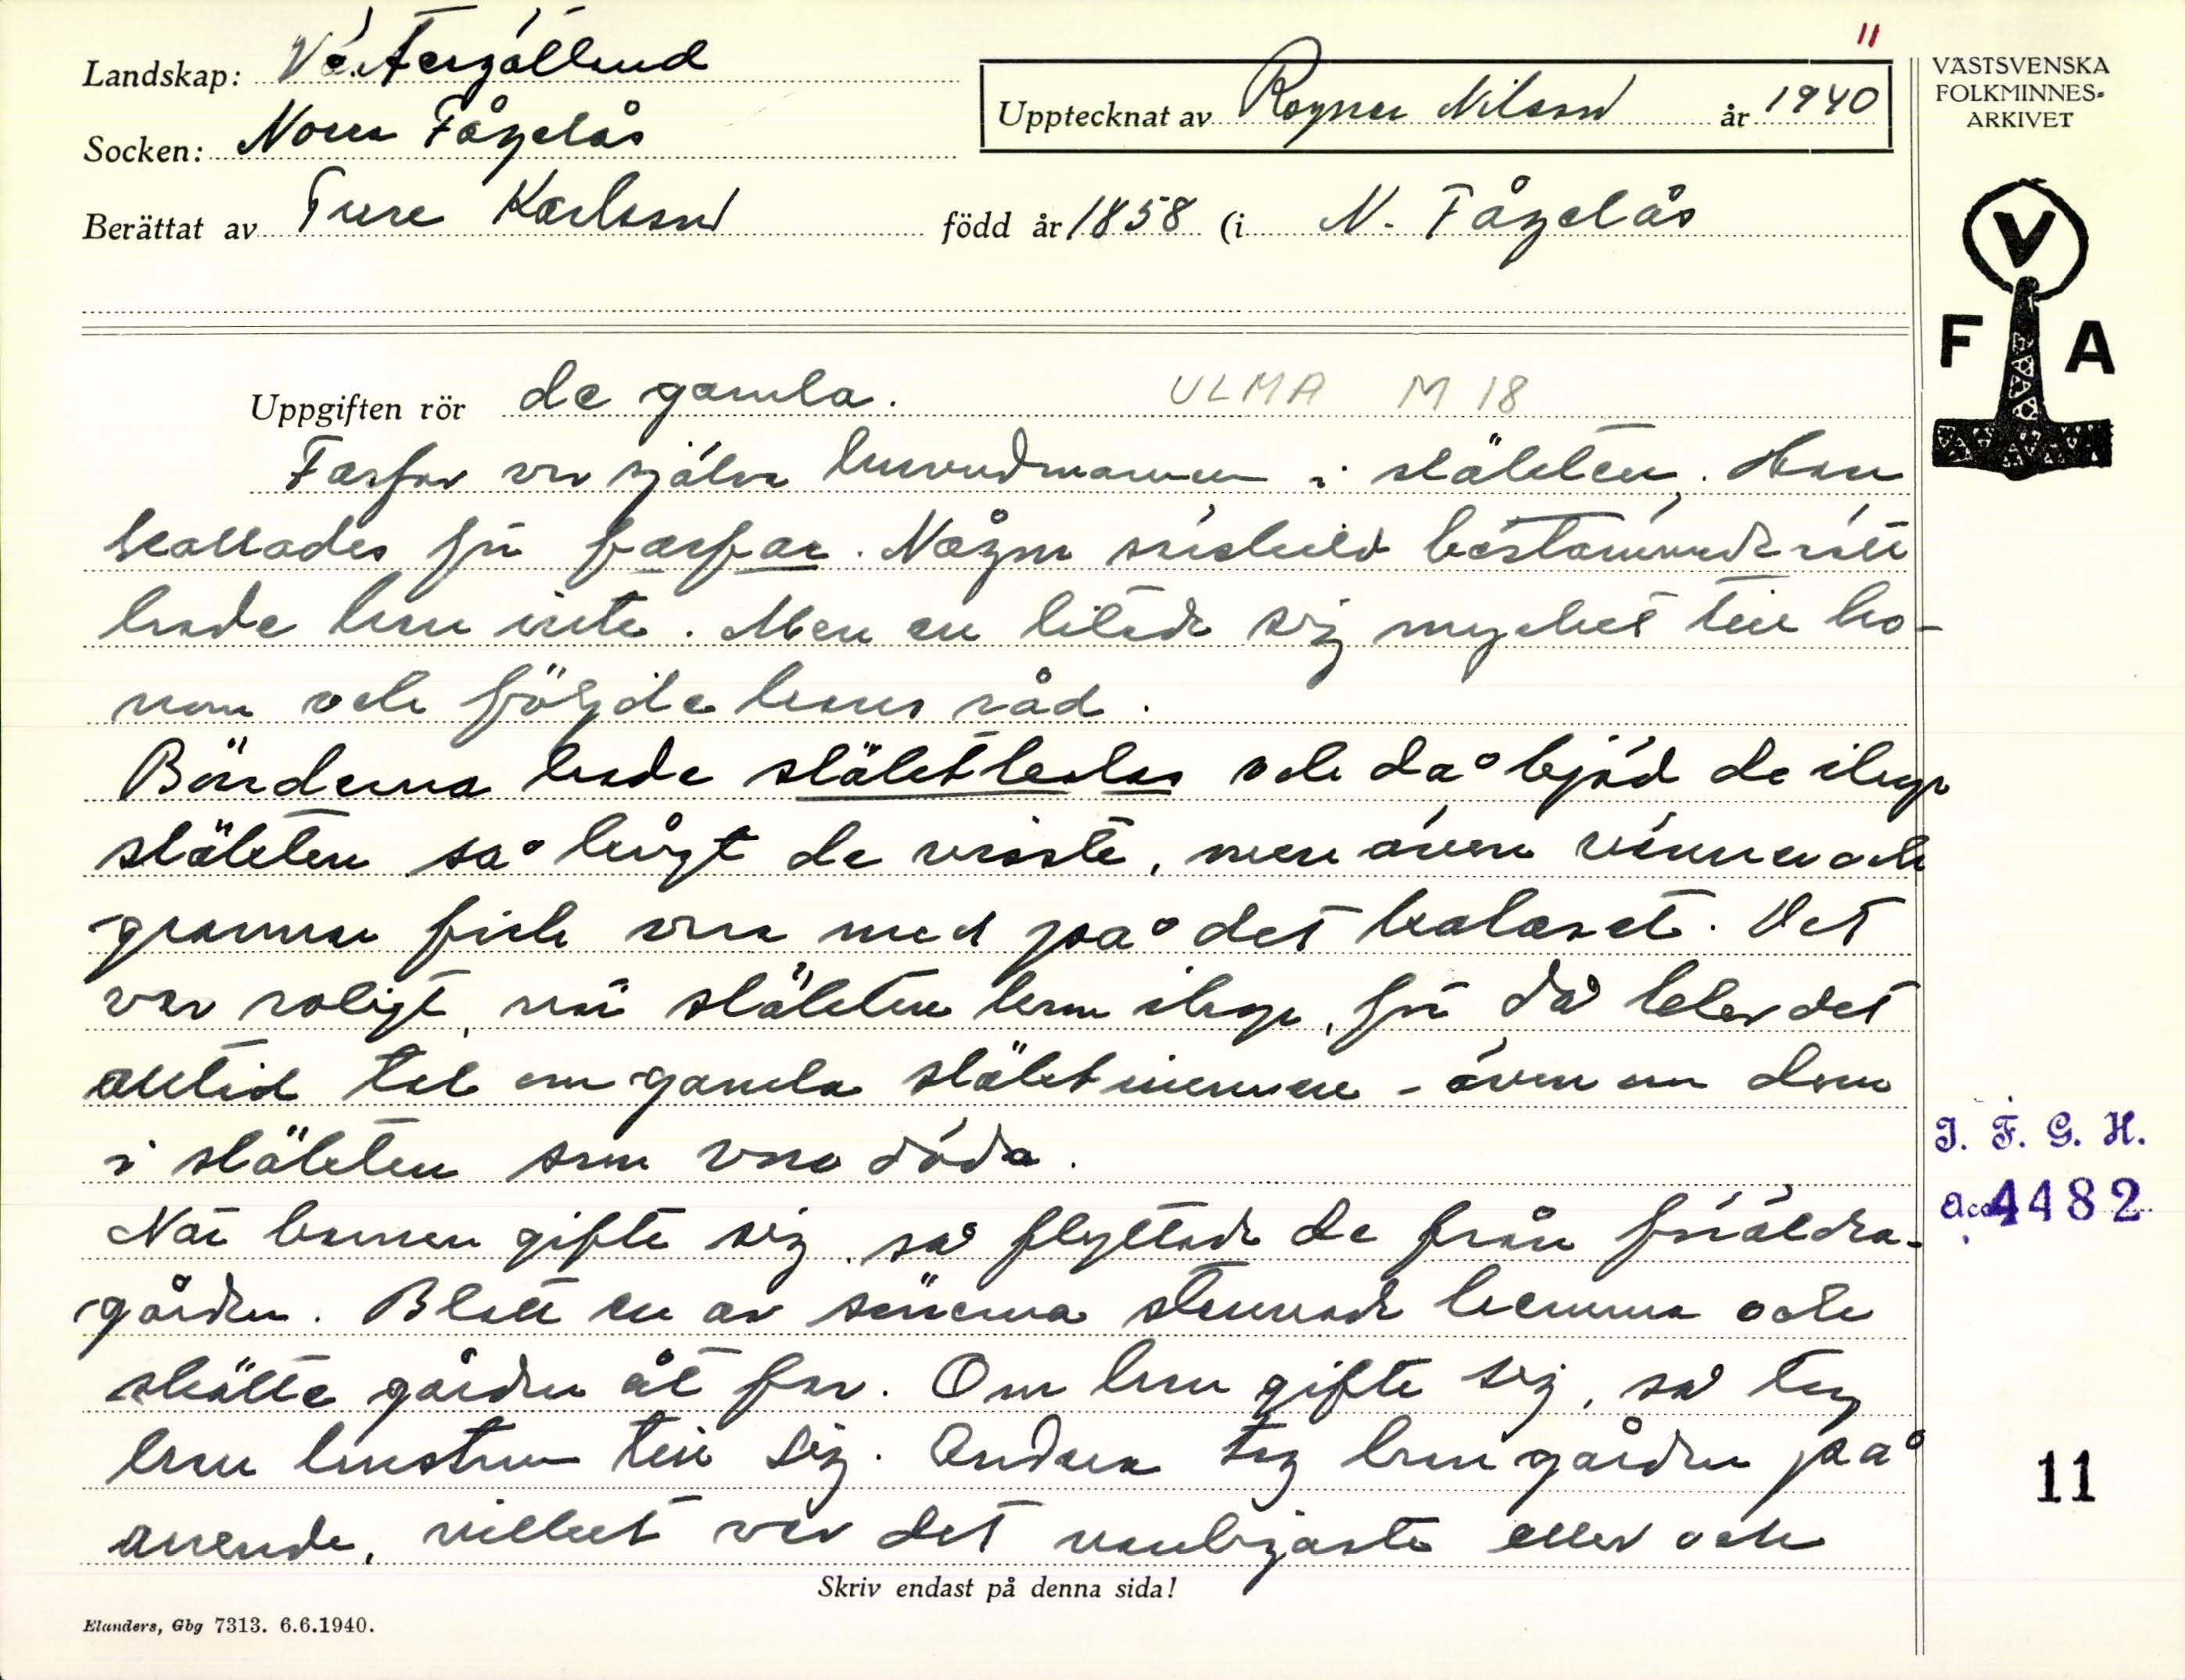 11
Landskap: Västergötland
Socken: Norra Fågelås
Upptecknat av Ragnar Nilsson år 1940
Berättat av Ture Karlsson född år 1858 (i N. Fågelås
VÄSTSVENSKA
FOLKMINNES-
ARKIVET
V
F A
Uppgiften rör de gamla. ULMA M 18
Farfar var själva huvudmannen i släkten. Han
kallades för farfar. Någon särskild bestämmanderätt
hade han inte. Men en litade sig mycket till ho-
nom och följde hans råd.
Bönderna hade släktkalas och då bjöd de ihop
släkten så långt de visste, men även vänner och
grannar fick vara med på det kalaset. Det
var roligt, när släkten kom ihop, för då blev det
alltid tal om gamla släktminnen - även om dem
i släkten som voro döda.
När barnen gifte sig, så flyttade de från föräldra-
gården. Blott en av sönerna stannade hemma och
skötte gården åt far. Om han gifte sig, så tog
han hustrun till sig. Endera tog han gården på
arrende, vilket var det vanligaste eller och
I. F. G. H.
Acc. 4482
11
Skriv endast på denna sida!
Elanders, Gbg 7313. 6.6.1940.